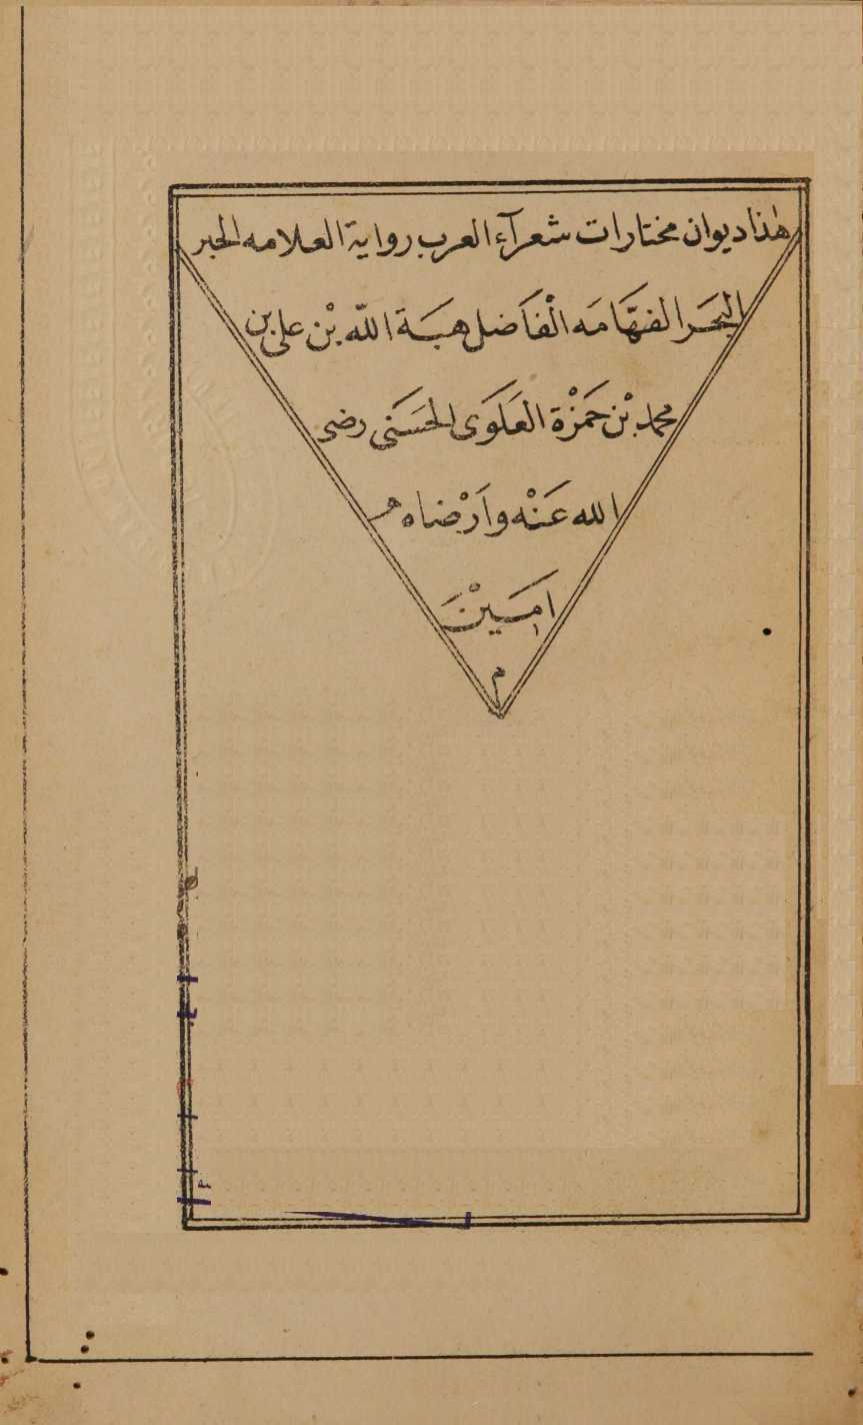 هٰذا ديوان مختارات شعرآء العرب رواية العلامه الحبر
البحَر الفهّامَه الْفاَضل هبَة الله بْن على بن
محمد بْن حَمزْة العَلَوَى الحَسَنى رضى
الله عَنْه واَرْضاه
اَمِيَنْ
م